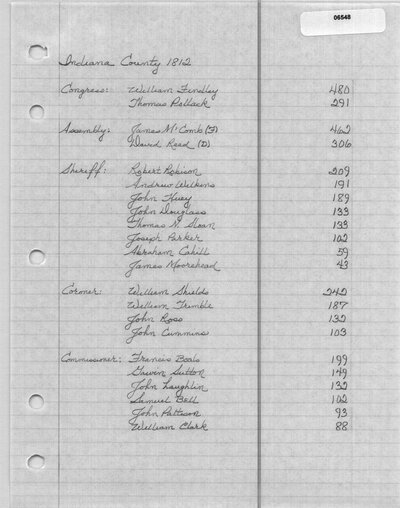 06548
Indiana County 1812
Congress: William Findley 480
Thomas Pollack 291
Assembly: James McComb (F) 462
David Reed (D) 306
Sheriff: Robert Robison 209
Andrew Wilkens 191
John Huey 189
John Douglass 133
Thomas N. Sloan 133
Joseph Parker 102
Abraham Cahill 59
James Moorehead 43
Coroner: William Shields 242
William Trimble 187
John Ross 132
John Cummins 103
Commissioner: Francis Boals 199
Gawin Sutton 149
John Laughlin 132
Samuel Bell 102
John Pattison 93
William Clark 88